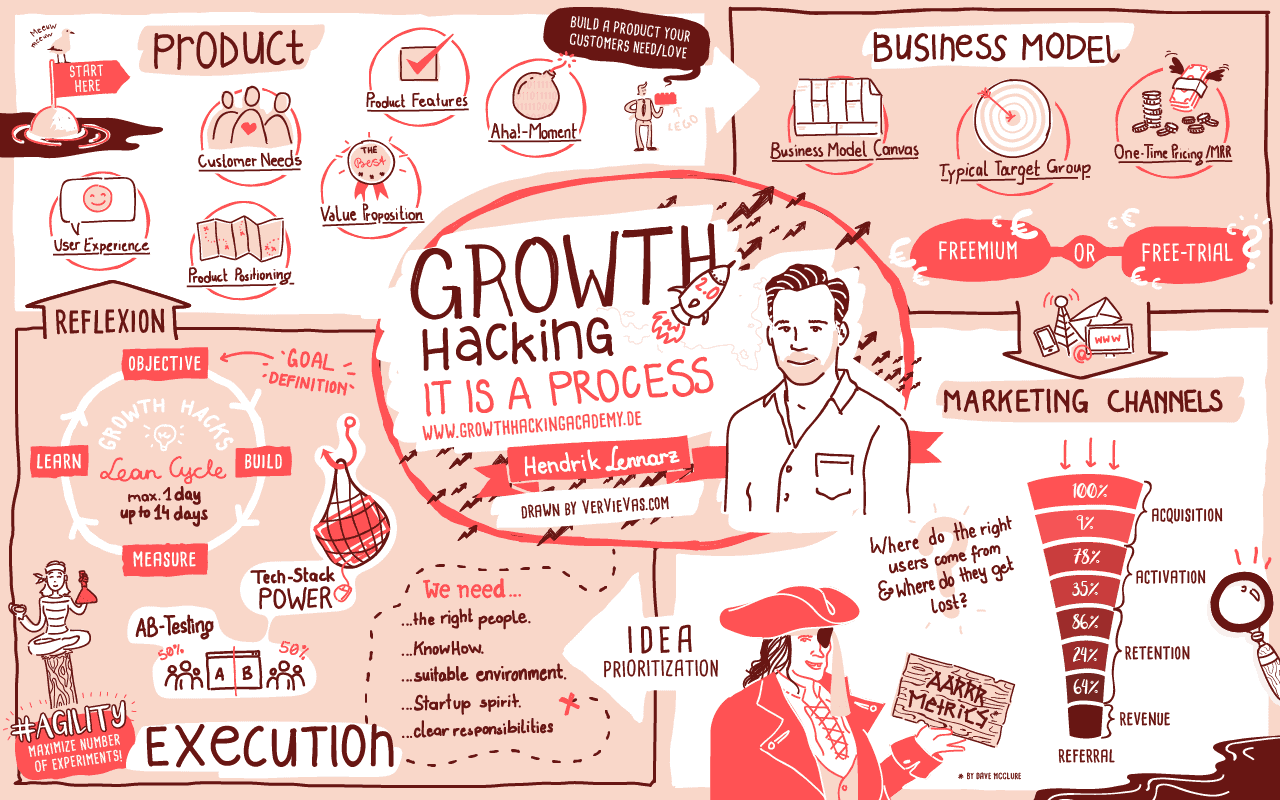 Meeuw
meeuw
START
HERE
PRODUCT
Product Features
Customer Needs
THE
Best
Value Proposition
Aha!-Moment
User Experience
Product Positioning
BUILD A PRODUCT YOUR
CUSTOMERS NEED/LOVE
LEGO
BUSINESS MODEL
Business Model Canvas
Typical Target Group
One-Time Pricing/MRR
€
€
€
€
€
€
FREEMIUM
OR
FREE-TRIAL
?
WWW
@
MARKETING CHANNELS
GROWTH
Hacking
2.0
IT IS A PROCESS
WWW.GROWTHHACKINGACADEMY.DE
Hendrik Lennarz
DRAWN BY VERVIEVAS.COM
REFLEXION
OBJECTIVE
GOAL
DEFINITION
GROWTH HACKS
LEARN
Lean Cycle
BUILD
max. 1 day
up to 14 days
MEASURE
Tech-Stack
POWER
AB-Testing
50%
50%
A B
#AGILITY
MAXIMIZE NUMBER
OF EXPERIMENTS!
EXECUTION
We need...
...the right people.
...KnowHow.
...suitable environment.
...Startup spirit.
...clear responsibilities
IDEA
PRIORITIZATION
Where do the right
users come from
& where do they get
lost?
?
AARRR
METRICS*
* BY DAVE MCCLURE
100%
9%
78%
35%
86%
24%
64%
ACQUISITION
ACTIVATION
RETENTION
REVENUE
REFERRAL